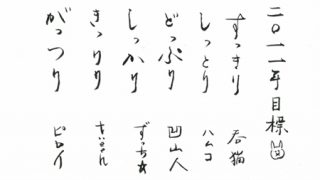 二〇一一年目標
すっきり 呑猫
しっとり ハムコ
どっぷり 凹山人
しっかり ずっち★
きっちり
がっつり ピロイ